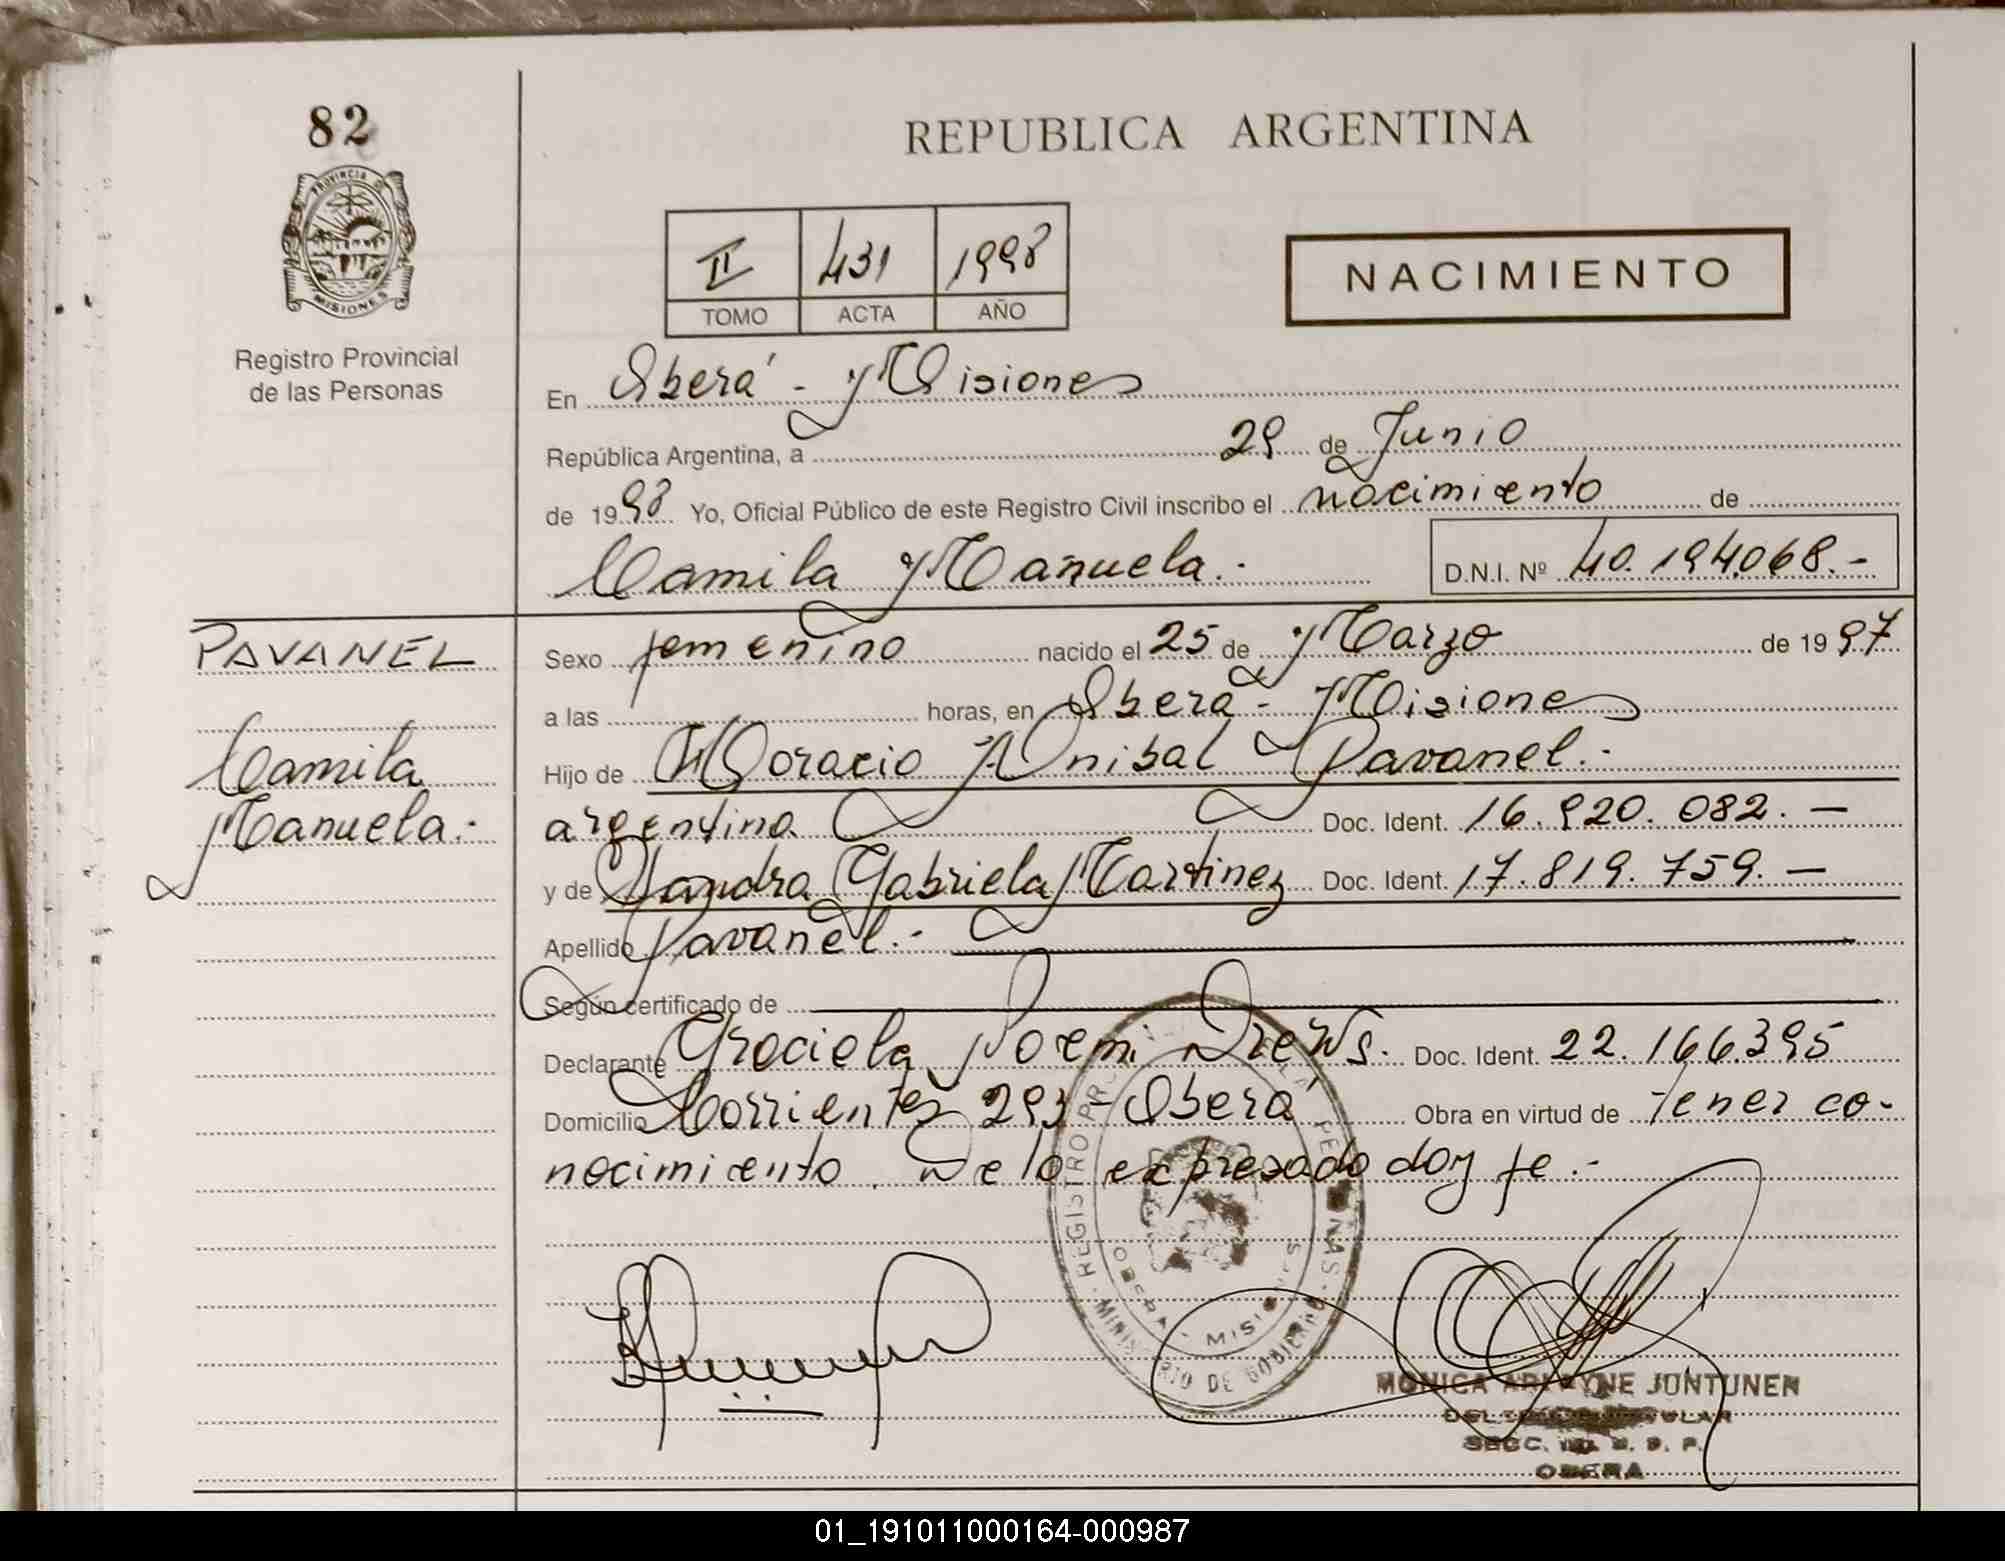 82
REPUBLICA ARGENTINA
PROVINCIA DE
MISIONES
Registro Provincial
de las Personas
II 431 1998
TOMO ACTA AÑO
NACIMIENTO
En Oberá - Misiones
República Argentina, a 29 de Junio
de 1998 Yo, Oficial Público de este Registro Civil inscribo el nacimiento de
Camila Manuela.- D.N.I. Nº 40.194.068.-
PAVANEL
Camila
Manuela.-
Sexo femenino nacido el 25 de Marzo de 1997
a las horas, en Oberá - Misiones
Hijo de Horacio Anibal Pavanel.-
argentino Doc. Ident. 16.920.082.-
y de Sandra Gabriela Martinez Doc. Ident. 17.819.759.-
Apellido Pavanel.-
Según certificado de
Declarante Graciela Noemi Drews. Doc. Ident. 22.166.395
Domicilio Corrientes 293 - Oberá Obra en virtud de tener co-
nocimiento. De lo expresado doy fe.-
REGISTRO DE LAS PERSONAS
OBERA - MISIONES
MINISTERIO DE GOBIERNO
MONICA JUNTUNEN
OBERA
01_191011000164-000987